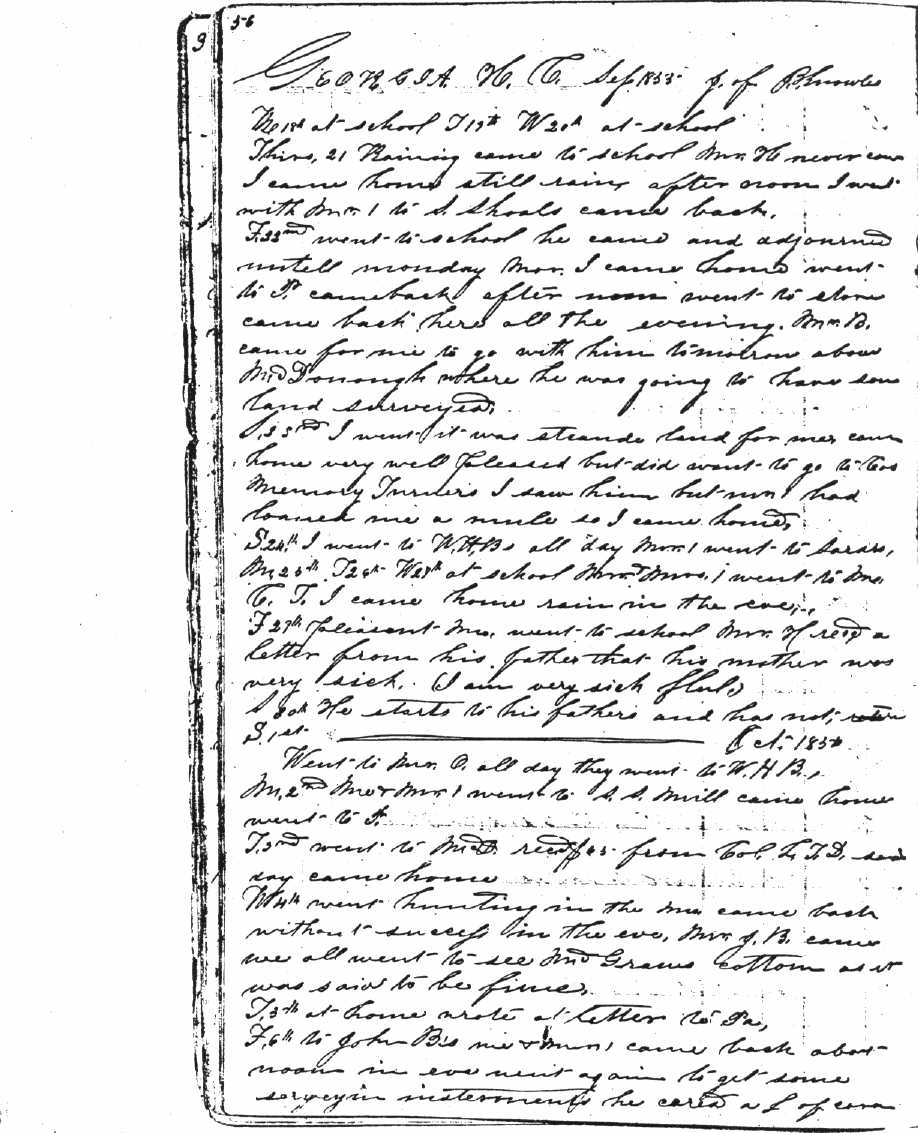 9
56
GEORGIA. H. C. Sep 1855 J. of P. Knowles
Mo, 18th at school T 19th W 20th at school
Thurs, 21 Raining came to school Mr. H never com
I came home still rains after noon I went
with Mr. I to S. Shoals came back.
F. 22nd went to school he came and adjourned
untell monday Mor. I came home went
to P. cameback after noon went to store
came back here all the evening. Mr. B.
came for me to go with him tomorrow above
McDonough where he was going to have som
land surveyed.
S, 23rd I went it was land for me
home very well pleased but did want to go to
Memory Turners I saw him but Mr. I had
loaned me a mule so I came home,
S 24th I went to W.H.Bs all day Mr. I went to
M, 25th T 26th W 27th at school Mr & Mrs. I went to
C. T. I came home rain in the eve,
F 29th pleasant Mo, went to school Mr. H recd a
letter from his father that his mother was
very sick. (I am very sick
S 30th He starts to his fathers and has not
S, 1st Oct, 185
Went to Mr. O. all day they went to W. H B.,
M, 2nd Me & Mr. I went to S. S. Mill came home
went to P.
T, 3rd went to McD. recd from Col. L. T. D.
day came home
W 4th went hunting in the came back
without success in the eve, Mr. J. B. came
we all went to see cottom as it
was said to be fine,
T, 5th at home wrote a letter to Pa,
F, 6th to John Bs me & Mr. I came back about
noon in eve went again to get some
serveyin insterments he a L of corn